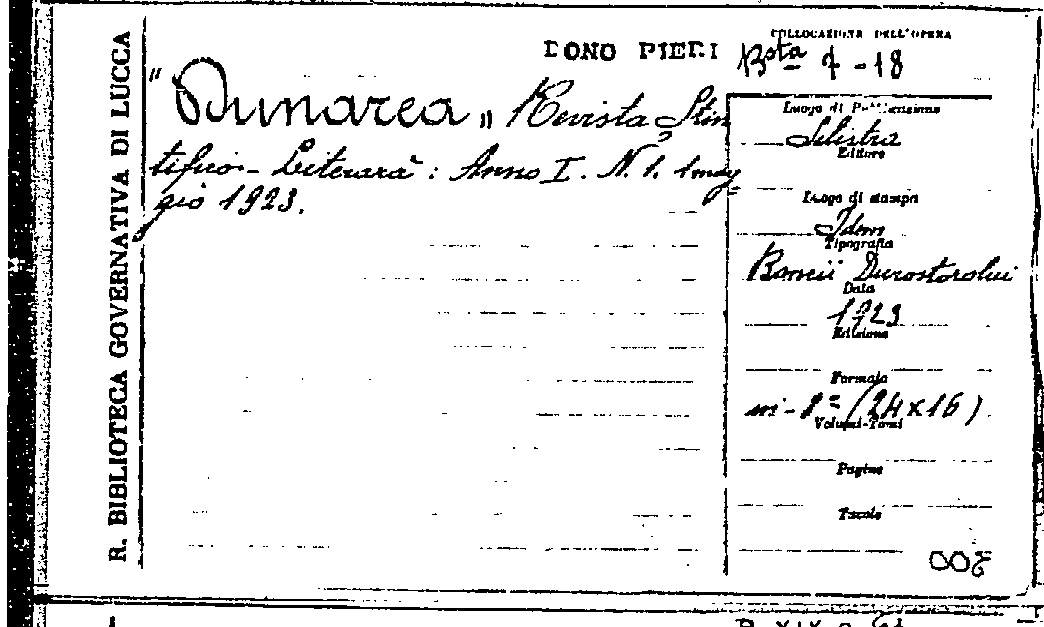 R. BIBLIOTECA GOVERNATIVA DI LUCCA
DONO PIERI
COLLOCAZIONE DELL'OPERA
Bsta 7-18
"Dunarea„ Revista Stin
tifico-Literară: Anno I. N. 1. 1 mag
gio 1923.
Luogo di Pubblicazione
Silistra
Editore
Luogo di stampa
Idem
Tipografia
Bancii Durostorului
Data
1923
Edizione
Formato
in-8º (24x16)
Volumi-Tomi
Pagine
Tavole